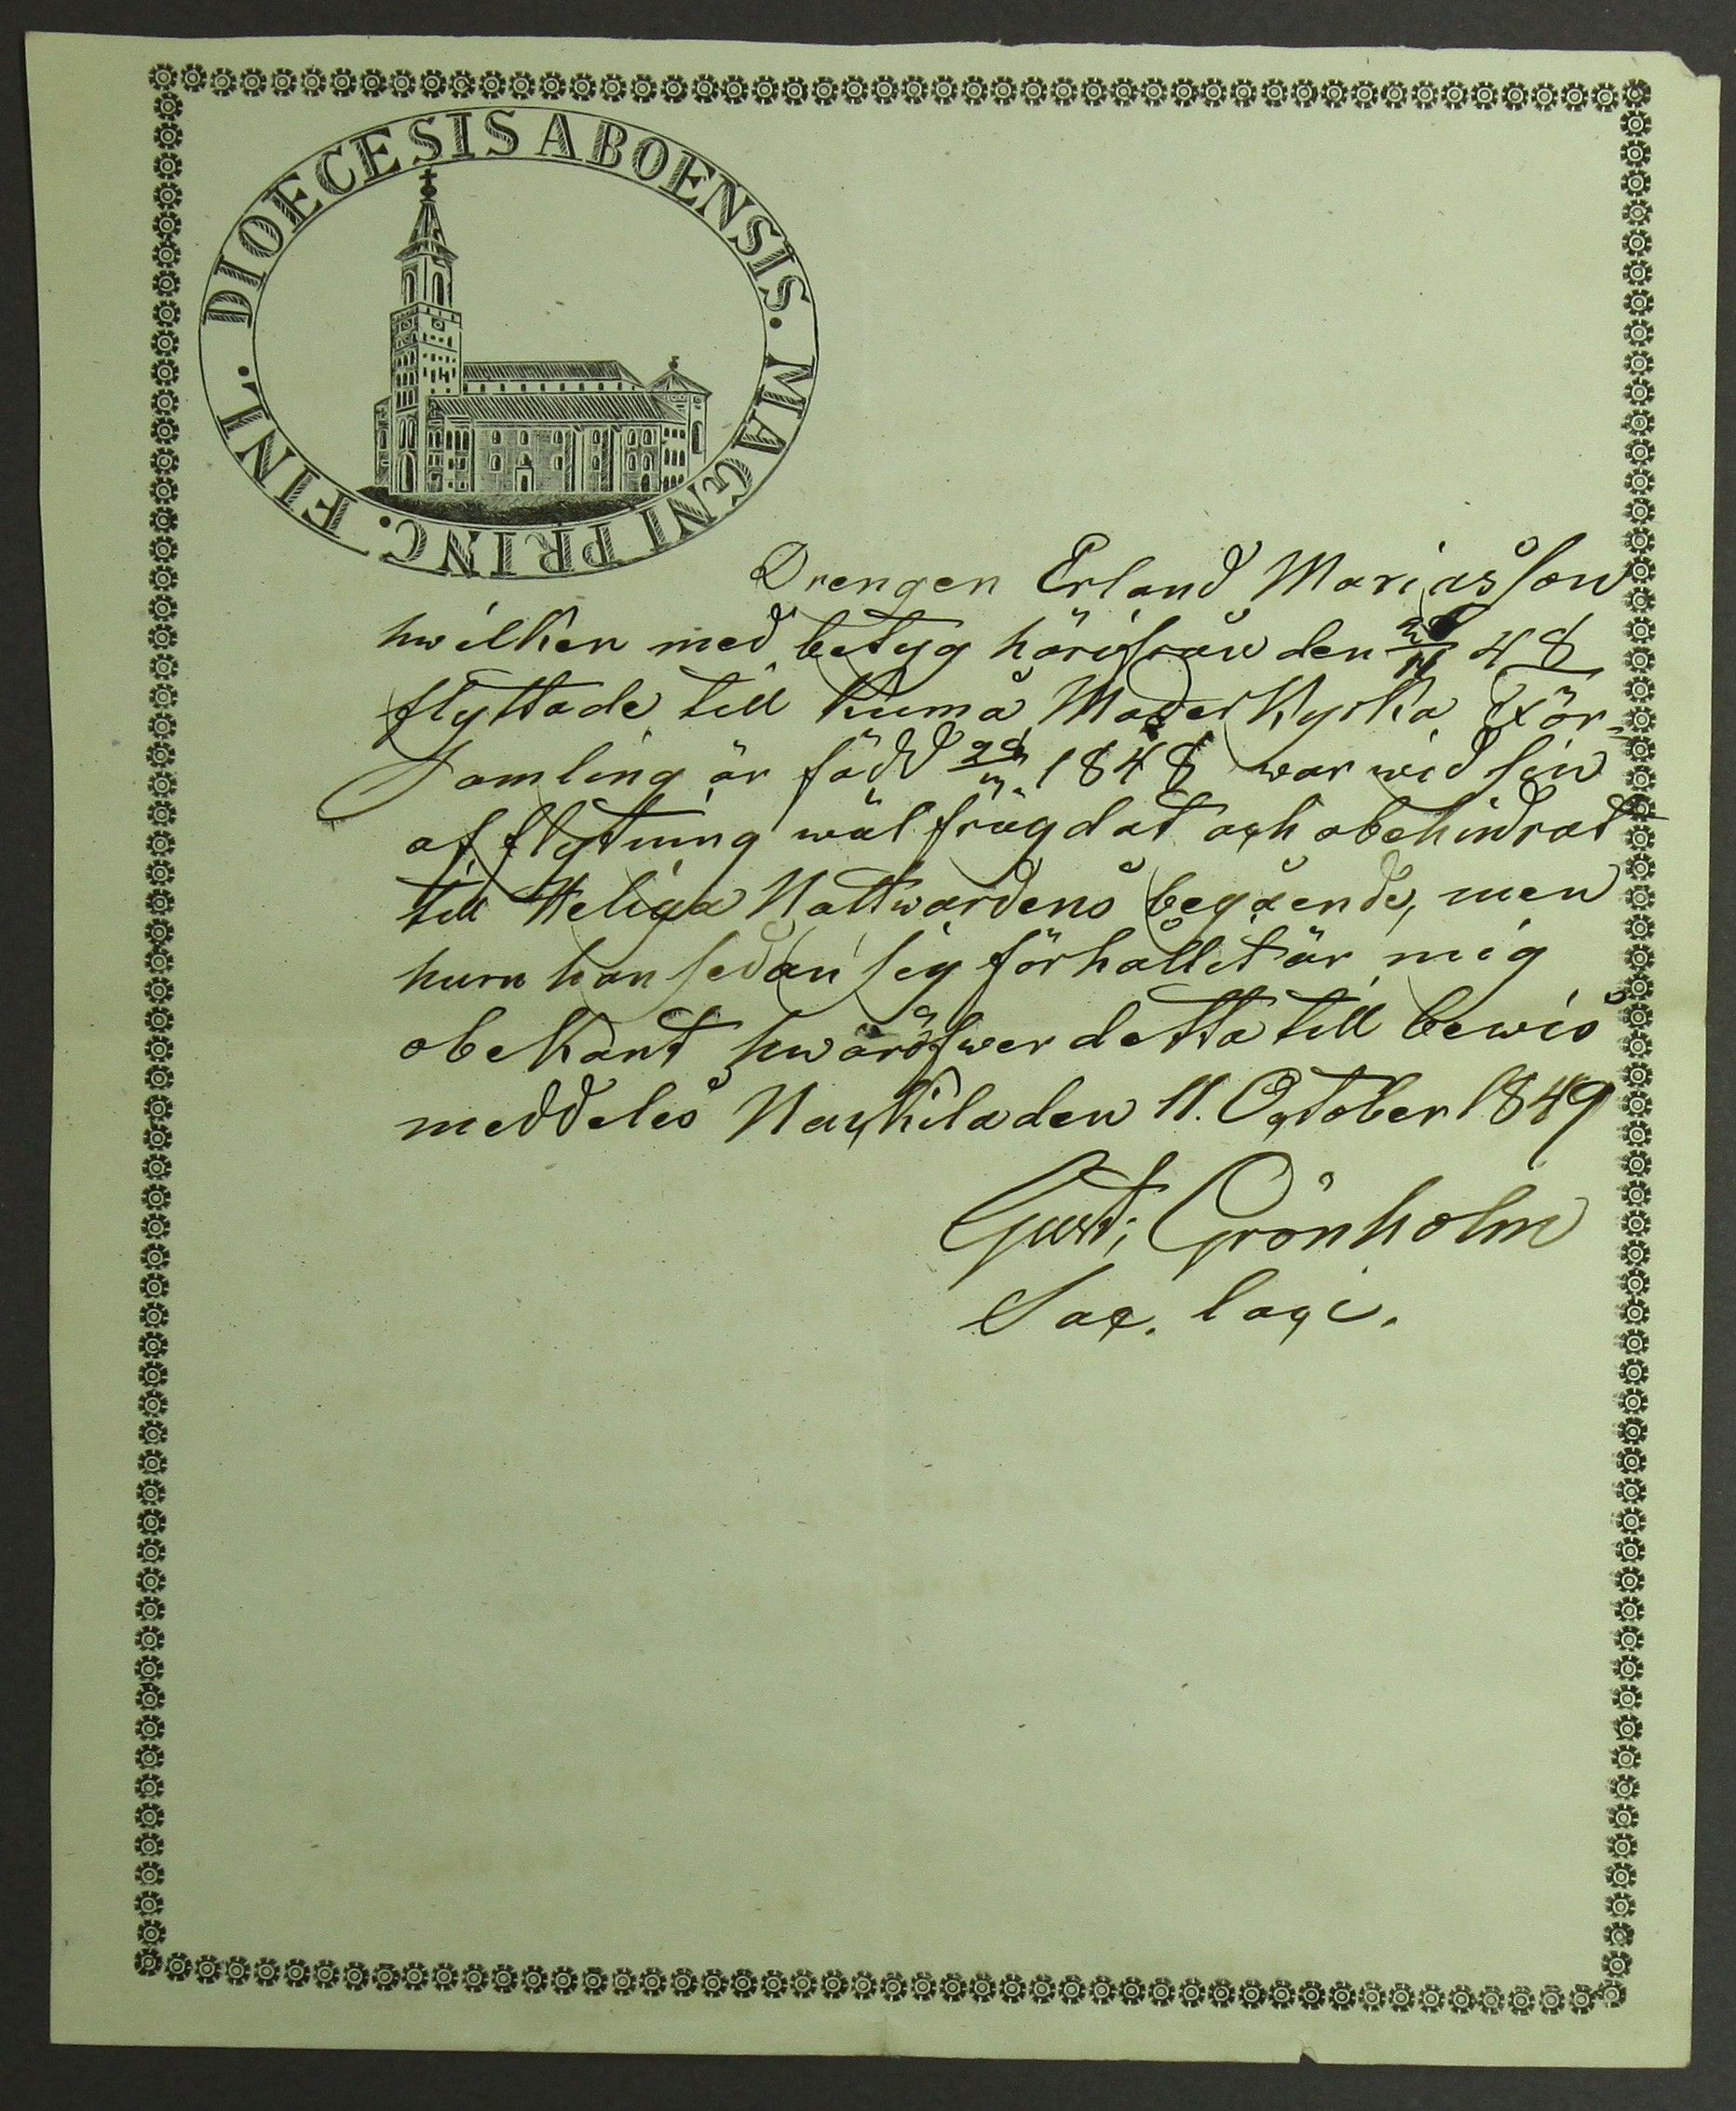 DIOECESIS ABOENSIS. MAGNI PRINC. FINL.
Drengen Erland Mariasson
hwilken med betyg härifrån den 48
flyttade till Kumå Moder Kyrka För-
samling är född 18 war wid sin
afflytning wälfrägdat och obehindrat
till Heliga Nattwardens begående, men
huru han sedan sig förhållit är mig
obekant hwaröfwer detta till bewis
meddeles Nackila den 11. October 1849
Gust: Grönholm
Sac. loci.